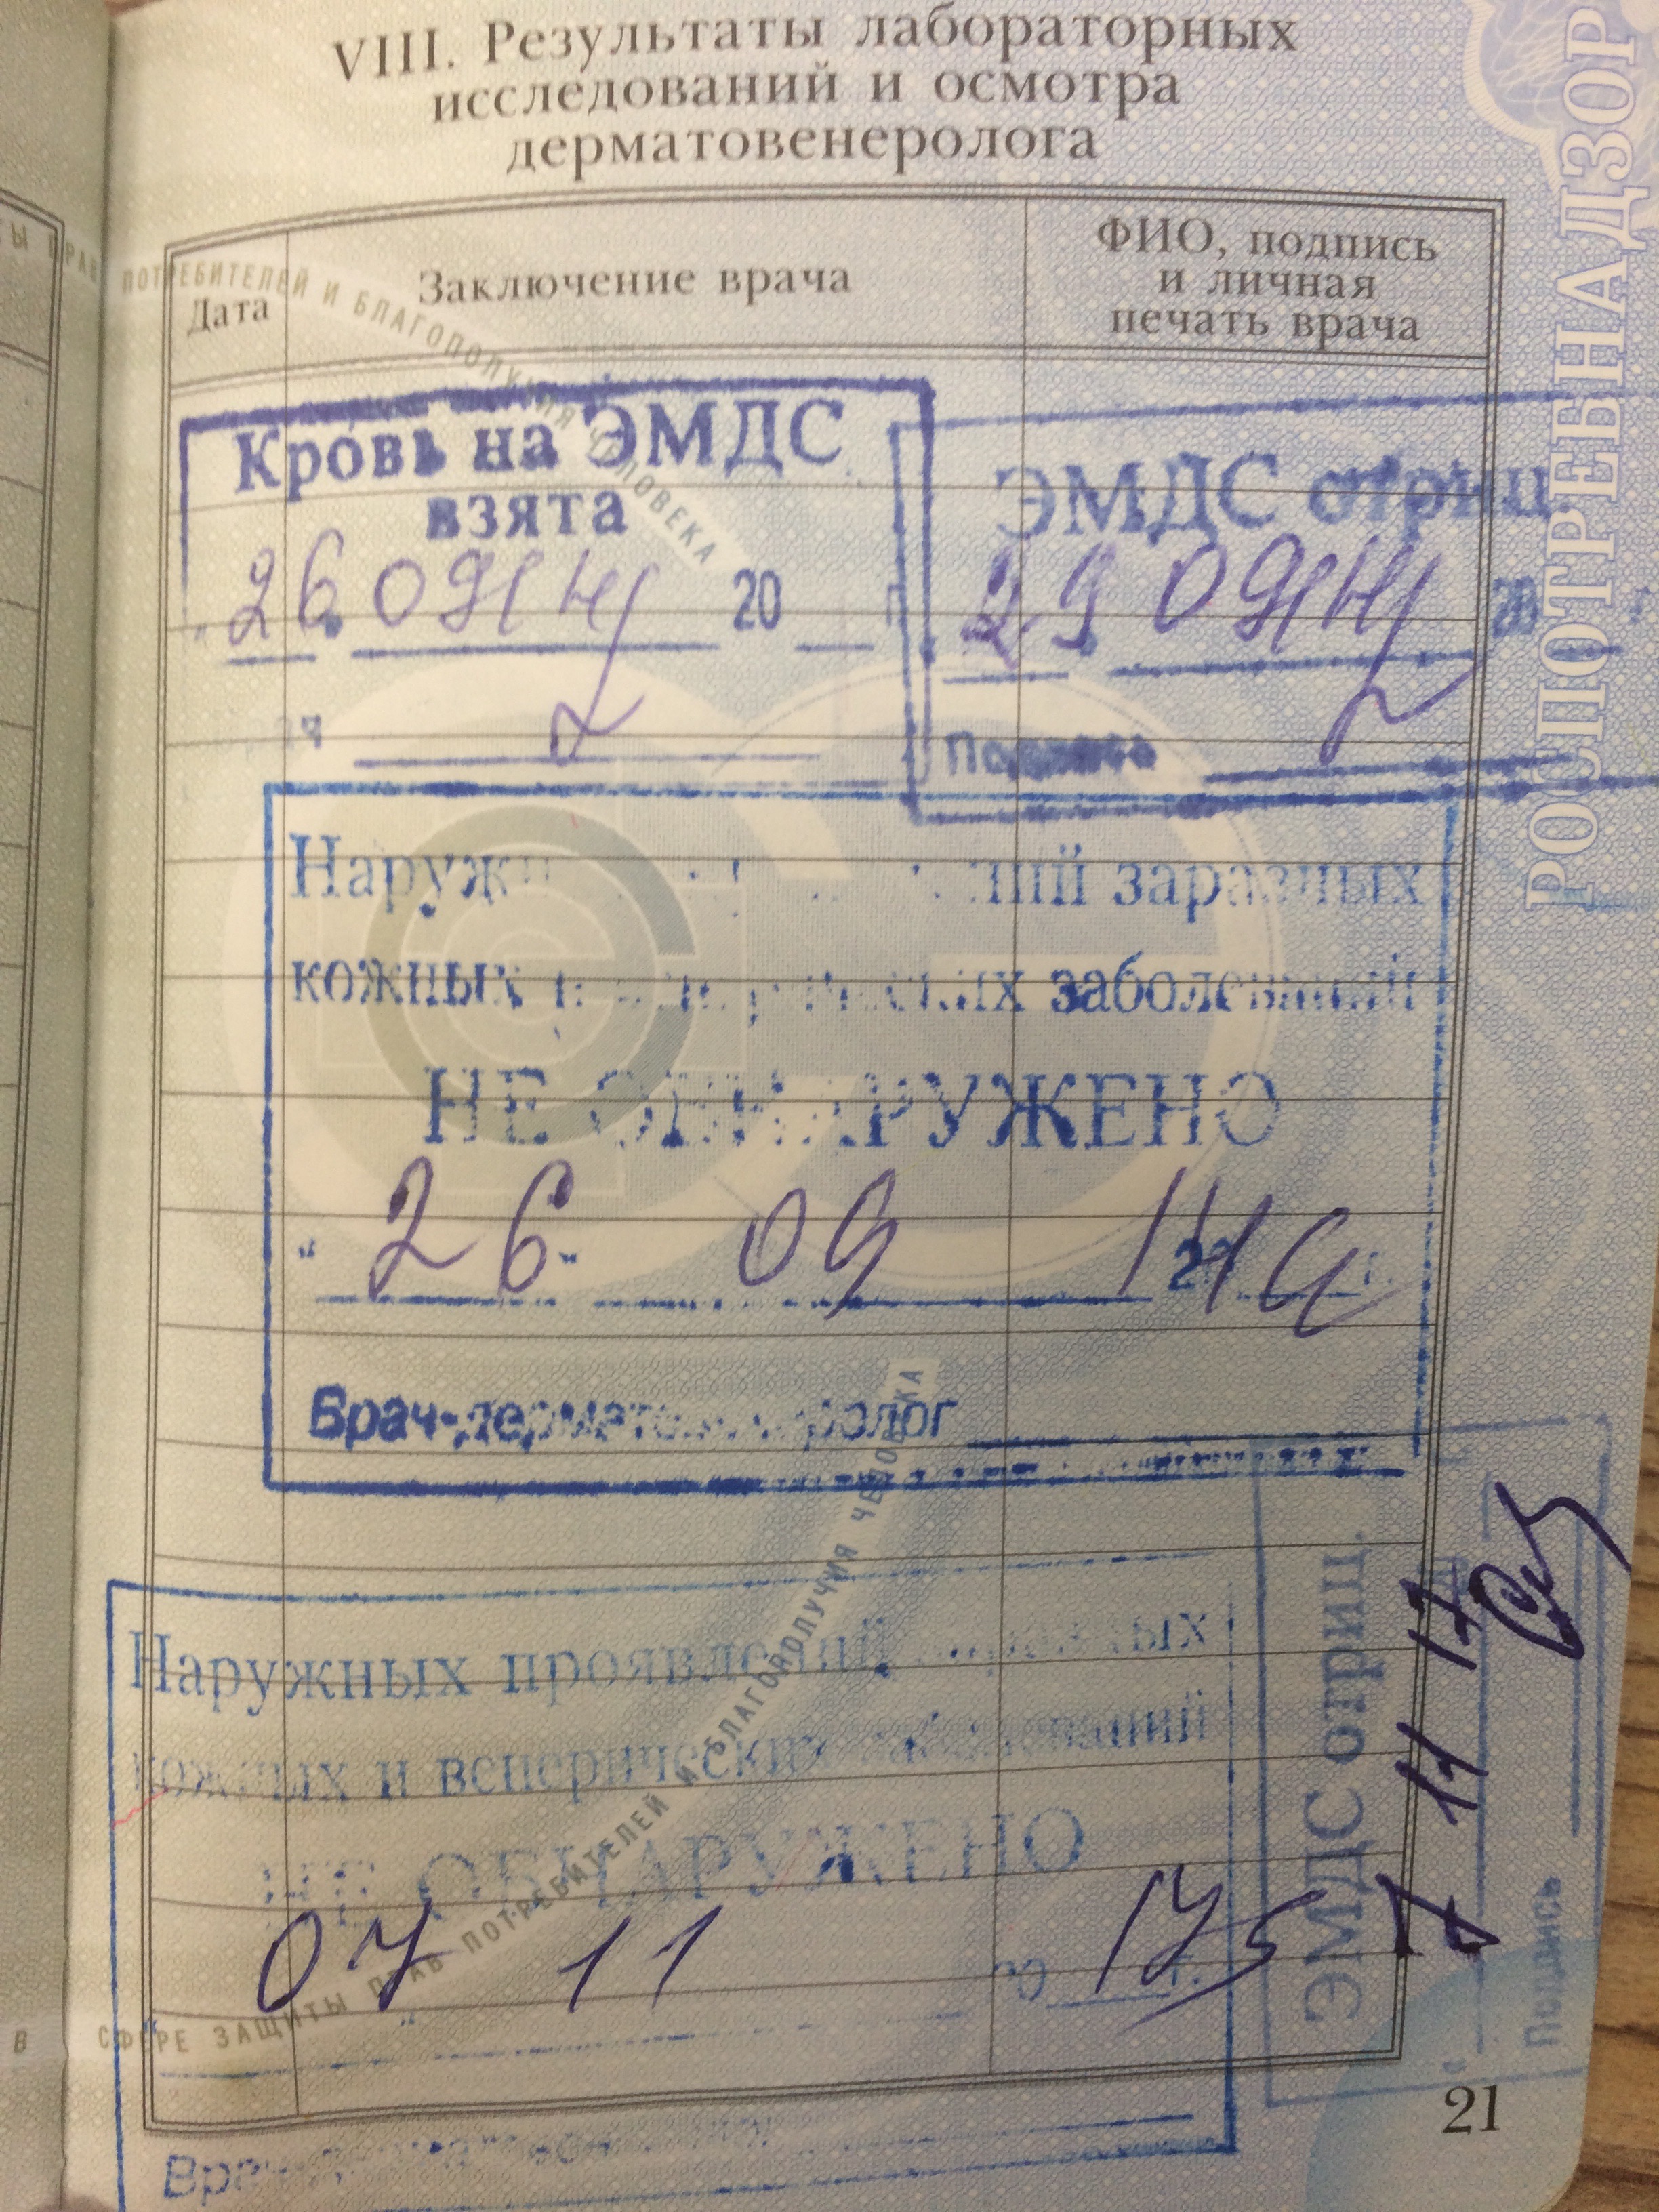 VIII. Результаты лабораторных
исследований и осмотра
дерматовенеролога
Дата
Заключение врача
ФИО, подпись
и личная
печать врача
РОСПОТРЕБНАДЗОР
ПОТРЕБИТЕЛЕЙ И БЛАГОПОЛУЧИЯ ЧЕЛОВЕКА
Кровь на ЭМДС
взята
26 09 14 20
ЭМДС отриц.
29 09 14 20
Подпись
Наружн ний заразных
кожных и венерических заболеваний
НЕ ОБНАРУЖЕНО
" 26 " 09 14 20 г.
Врач-дерматовенеролог
Наружных проявлений заразных
кожных и венерических заболеваний
НЕ ОБНАРУЖЕНО
07 11 17
Врач
ЭМДС отриц.
7 11 17
Подпись
В СФЕРЕ ЗАЩИТЫ ПРАВ ПОТРЕБИТЕЛЕЙ И БЛАГОПОЛУЧИЯ ЧЕЛОВЕКА
21